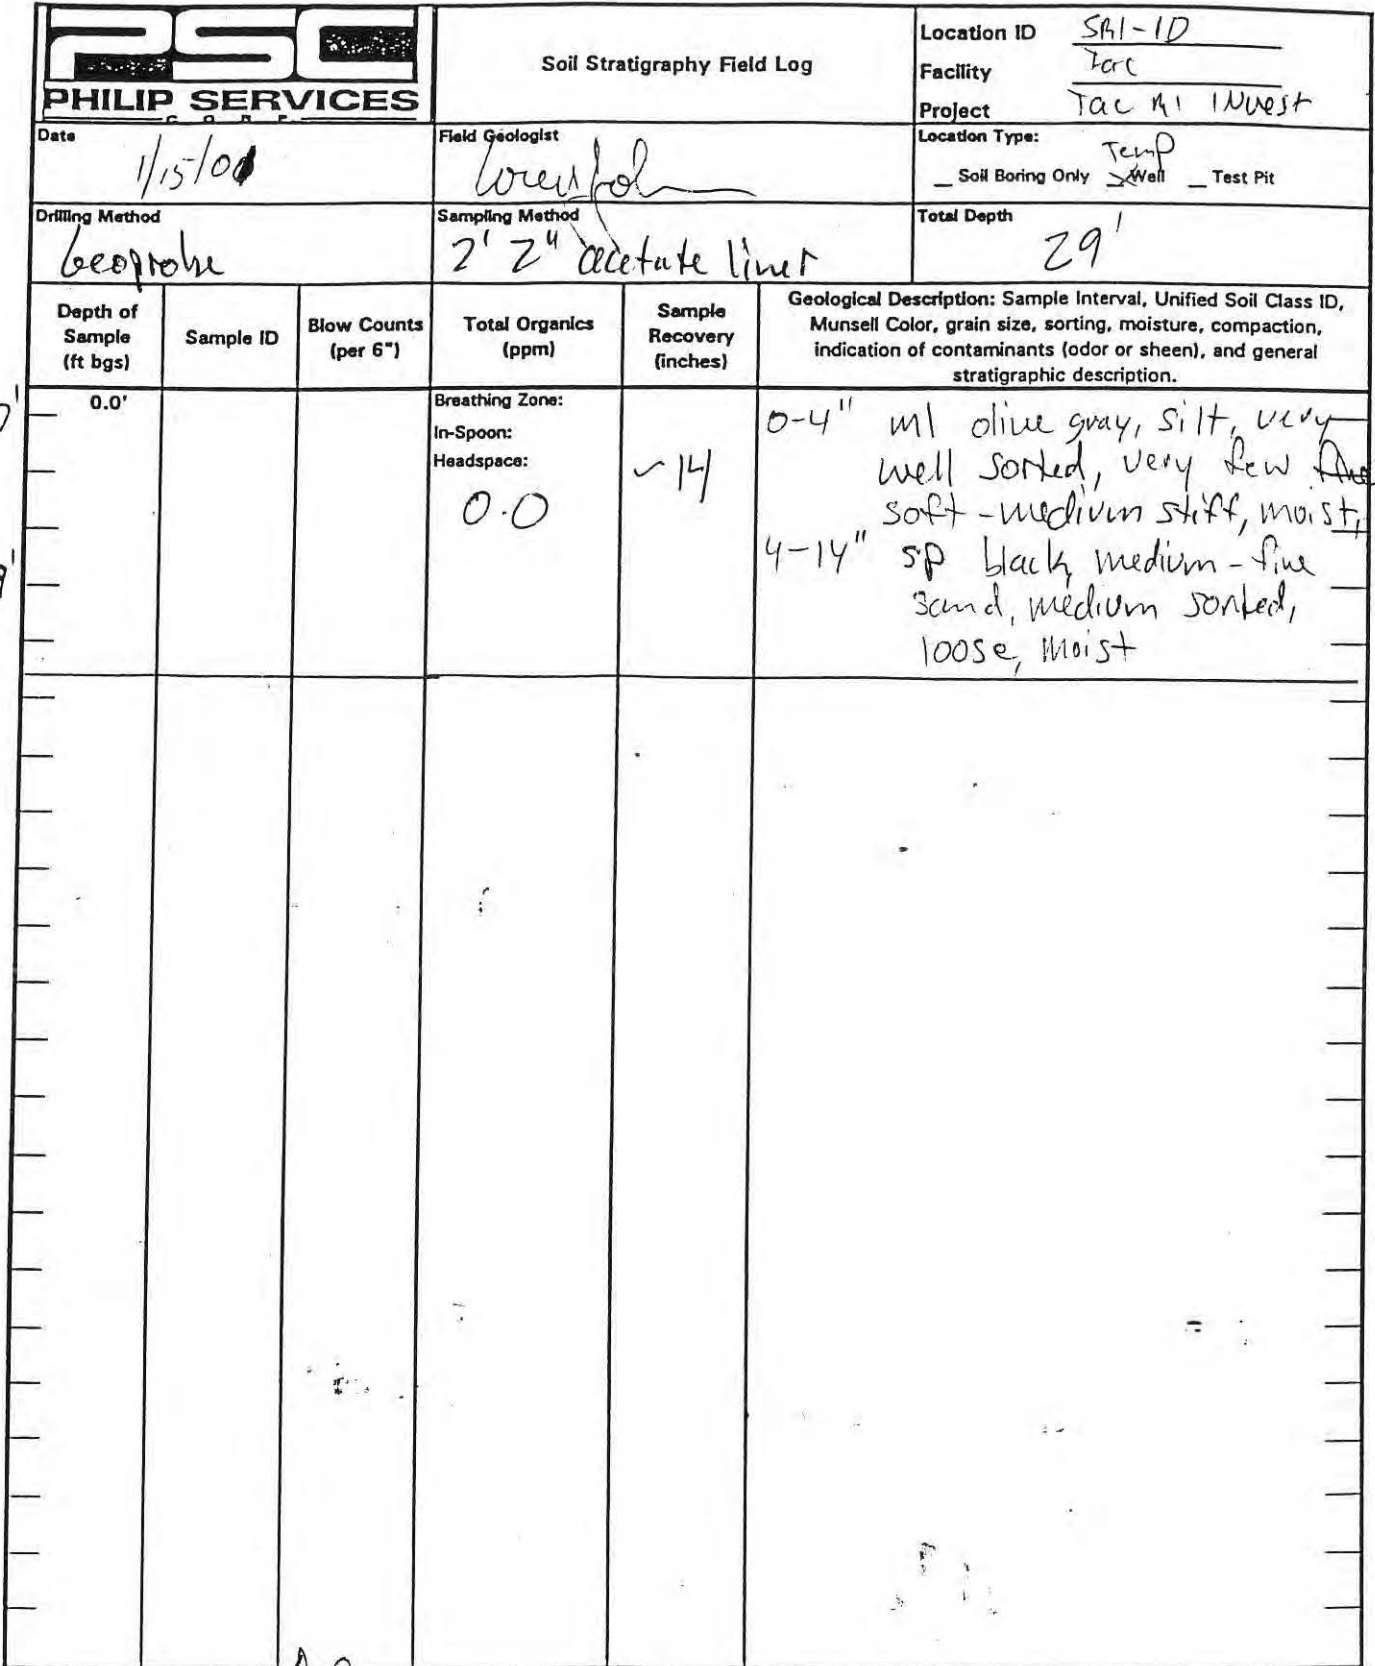 PSC
PHILIP SERVICES
CORP.
Soil Stratigraphy Field Log
Location ID SRI-1D
Facility
Project Tac RI INvest
Date
1/15/01
Field Geologist
Location Type:
Temp
_ Soil Boring Only X Well _ Test Pit
Drilling Method
Geoprobe
Sampling Method
2' 2" acetate liner
Total Depth
29'
Depth of
Sample
(ft bgs)
Sample ID
Blow Counts
(per 6")
Total Organics
(ppm)
Sample
Recovery
(inches)
Geological Description: Sample Interval, Unified Soil Class ID,
Munsell Color, grain size, sorting, moisture, compaction,
indication of contaminants (odor or sheen), and general
stratigraphic description.
0.0'
Breathing Zone:
In-Spoon:
Headspace:
0.0
~14
0-4" ml olive gray, silt, very
well sorted, very few fine
soft-medium stiff, moist,
4-14" sp black, medium-fine
sand, medium sorted,
loose, moist